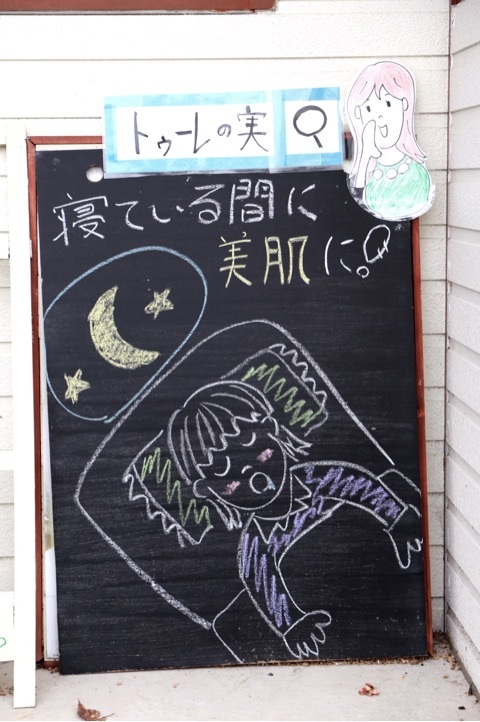 トゥーレの実
寝ている間に
美肌に。